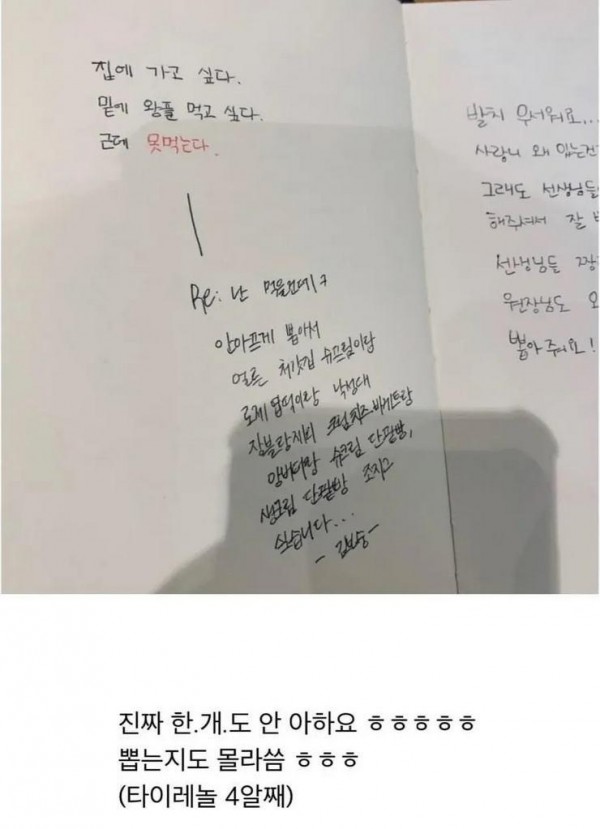 집에 가고 싶다.
밑에 와플 먹고 싶다.
근데 못먹는다.
Re: 난 먹을건데ㅋ
안아프게 뽑아서
얼른 처갓집 슈프림이랑
로제 엽떡이랑 낙성대
장블랑제리 크림치즈 바게트랑
앙버터랑 슈크림 단팥빵,
생크림 단팥빵 조지고
싶습니다...
발치 무서워요...
사랑니 왜 있는건
그래도 선생님들
해주셔서 잘
선생님들 짱
원장님도
뽑아 주세요!
진짜 한.개.도 안 아하요 ㅎㅎㅎㅎㅎ
뽑는지도 몰라씀 ㅎㅎㅎ
(타이레놀 4알째)